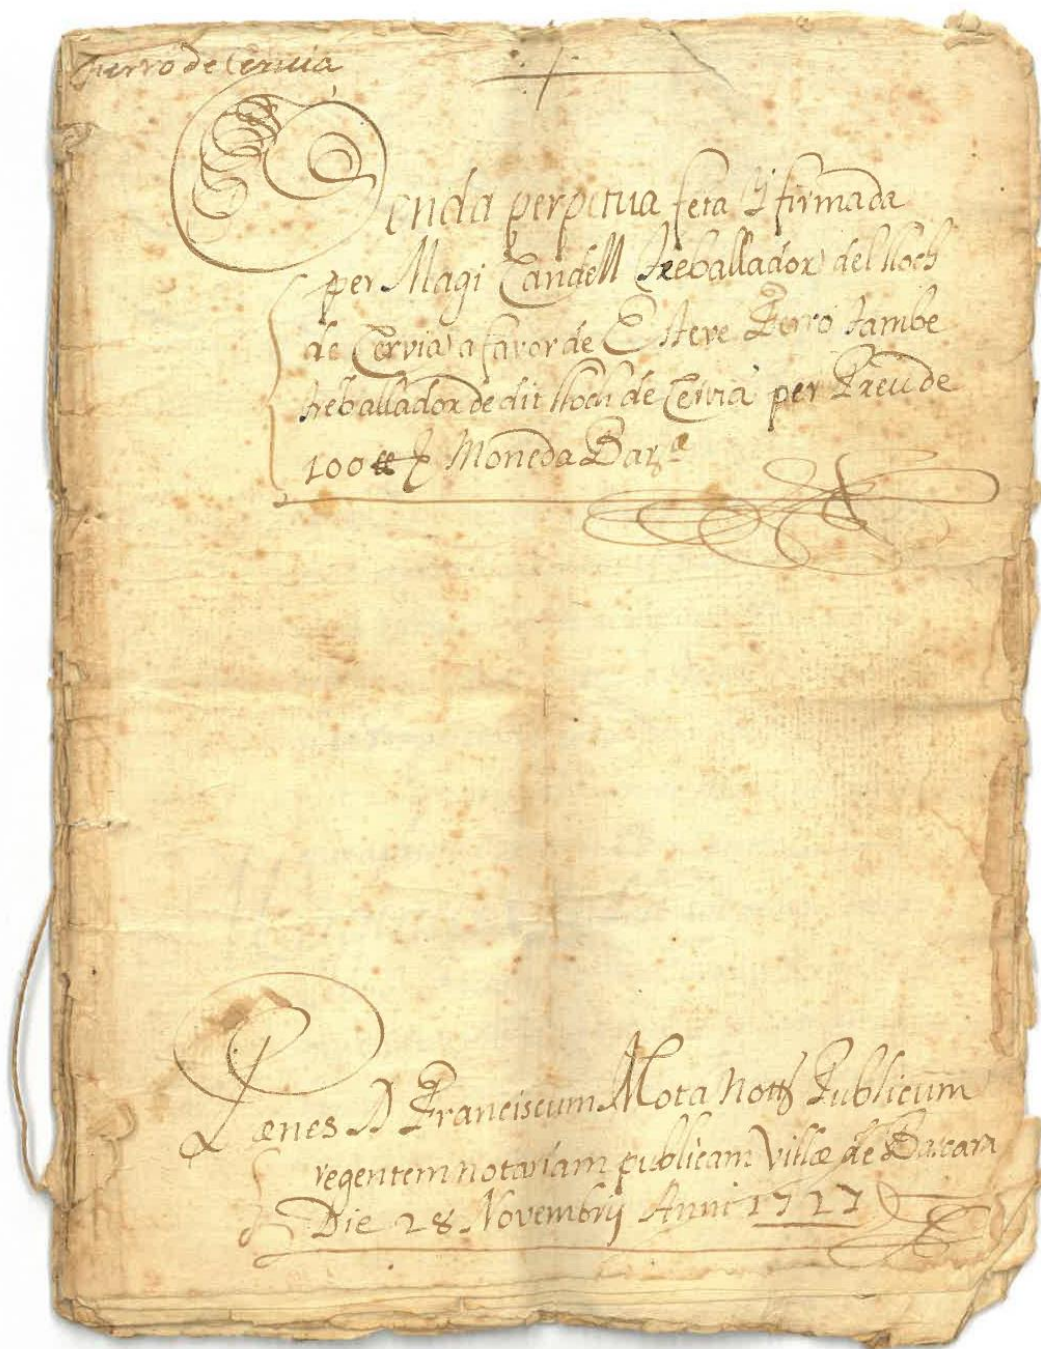 Ferro de Cervia
Venda perpetua feta y firmada
per Magi Candell treballador del lloch
de Cervia a favor de Esteve Ferro tambe
treballador de dit lloch de Cervia per Preu de
100 ll Moneda Barª
Pænes D Franciscum Mota Nott Publicum
regentem notariam publicam Villæ de Bascara
Die 28 Novembrij Anni 1727